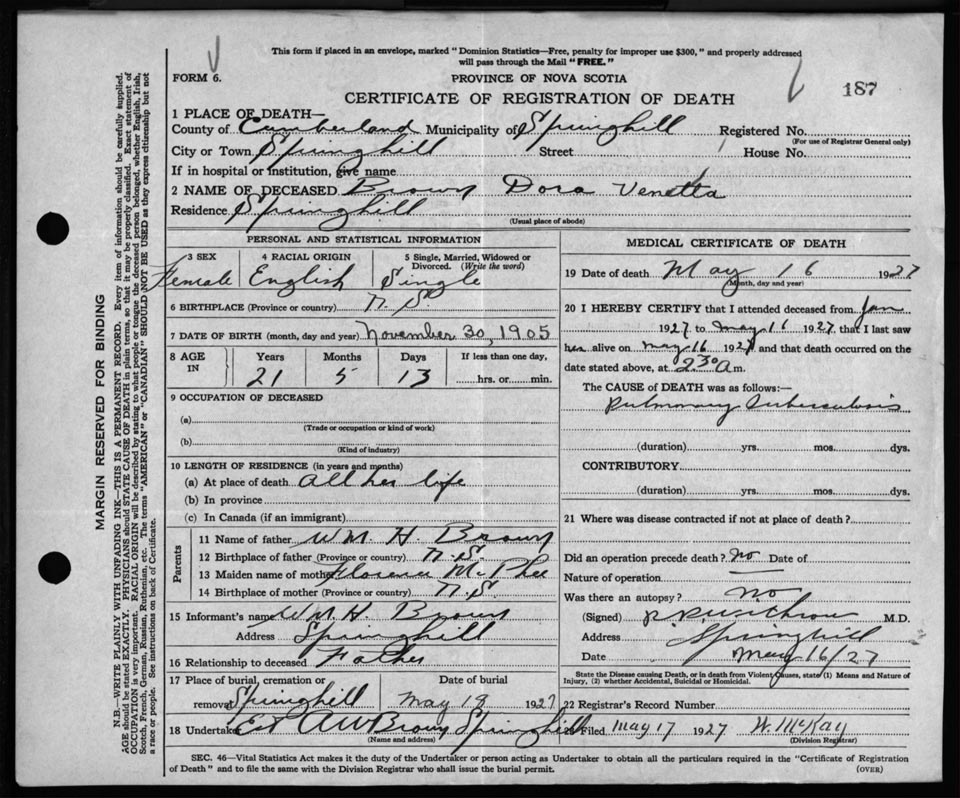 This form if placed in an envelope, marked "Dominion Statistics—Free, penalty for improper use $300," and properly addressed
will pass through the Mail "FREE."
FORM 6.
PROVINCE OF NOVA SCOTIA
187
CERTIFICATE OF REGISTRATION OF DEATH
1 PLACE OF DEATH—
County of Cumberland Municipality of Springhill Registered No.
(For use of Registrar General only)
City or Town Springhill Street House No.
If in hospital or institution, give name
2 NAME OF DECEASED Brown Dora Venetta
Residence Springhill
(Usual place of abode)
PERSONAL AND STATISTICAL INFORMATION
3 SEX 4 RACIAL ORIGIN 5 Single, Married, Widowed or
Divorced. (Write the word)
Female English Single
6 BIRTHPLACE (Province or country) N.S.
7 DATE OF BIRTH (month, day and year) November 30, 1905
8 AGE IN Years Months Days If less than one day,
21 5 13 hrs. or min.
9 OCCUPATION OF DECEASED
(a)
(Trade or occupation or kind of work)
(b)
(Kind of industry)
10 LENGTH OF RESIDENCE (in years and months)
(a) At place of death all her life
(b) In province
(c) In Canada (if an immigrant)
Parents
11 Name of father WM. H. Brown
12 Birthplace of father (Province or country) N.S.
13 Maiden name of mother Florence McPhee
14 Birthplace of mother (Province or country) N.S.
15 Informant's name WM H. Brown
Address Springhill
16 Relationship to deceased Father
17 Place of burial, cremation or Date of burial
removal Springhill May 18 1927
18 Undertaker Est A W Brown Springhill
(Name and address)
MEDICAL CERTIFICATE OF DEATH
19 Date of death May 16 1927
(Month, day and year)
20 I HEREBY CERTIFY that I attended deceased from Jan
1927 to May 16 1927, that I last saw
her alive on May 16 1927 and that death occurred on
date stated above, at 2.30 a m.
The CAUSE of DEATH was as follows:—
Pulmonary Tuberculosis
(duration) yrs. mos. dys.
CONTRIBUTORY
(duration) yrs. mos. dys.
21 Where was disease contracted if not at place of death?
Did an operation precede death? No Date of
Nature of operation
Was there an autopsy? No
(Signed) M.D.
Address Springhill
Date May 16/27
State the Disease causing Death, or in death from Violent Causes, state (1) Means and Nature of
Injury, (2) whether Accidental, Suicidal or Homicidal.
22 Registrar's Record Number
Filed May 17 1927 W. McKay
(Division Registrar)
SEC. 46—Vital Statistics Act makes it the duty of the Undertaker or person acting as Undertaker to obtain all the particulars required in the "Certificate of Registration
of Death" and to file the same with the Division Registrar who shall issue the burial permit.
(OVER)
MARGIN RESERVED FOR BINDING
N.B.—WRITE PLAINLY WITH UNFADING INK—THIS IS A PERMANENT RECORD. Every item of information should be carefully supplied.
AGE should be stated EXACTLY. PHYSICIANS should STATE CAUSE OF DEATH in plain terms, so that it may be properly classified. Exact statement of
OCCUPATION is very important. RACIAL ORIGIN will be described by stating to what people or tongue the deceased person belonged, whether English, Irish,
Scotch, French, German, Russian, Ruthenian, etc. The terms "AMERICAN" or "CANADIAN" SHOULD NOT BE USED as they express citizenship but not
a race or people. See instructions on back of Certificate.